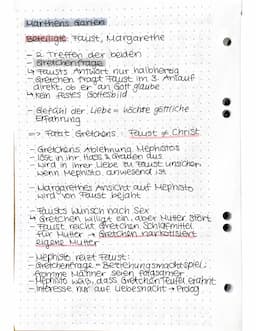 Marthens Garten
Beteiligte: Faust, Margarethe
- 2. Treffen der beiden
- Gretchenfrage
↳ Fausts Antwort nur halbherzig
- Gretchen fragt Faust im 3. Anlauf
direkt, ob er an Gott glaube
↳ kein festes Gottesbild
- Gefühl der Liebe = höchste göttliche
Erfahrung
=> Fazit Gretchens: Faust ≠ Christ
- Gretchens Ablehnung Mephistos
- löst in ihr Hass & Grauen aus
- wird in ihrer Liebe zu Faust unsicher
wenn Mephisto anwesend ist
- Margarethes Ansicht auf Mephisto
wird von Faust bejaht
- Fausts Wunsch nach Sex
↳ Gretchen willigt ein, aber Mutter stört
- Faust reicht Gretchen Schlafmittel
für Mutter → Gretchen narkotisiert
eigene Mutter
- Mephisto reizt Faust:
Gretchenfrage = Beziehungsmachtspiel,
fromme Männer seien folgsamer
- Mephisto weiß, dass Gretchen Teufel erahnt
- Interesse nur auf Liebesnacht → Prolog